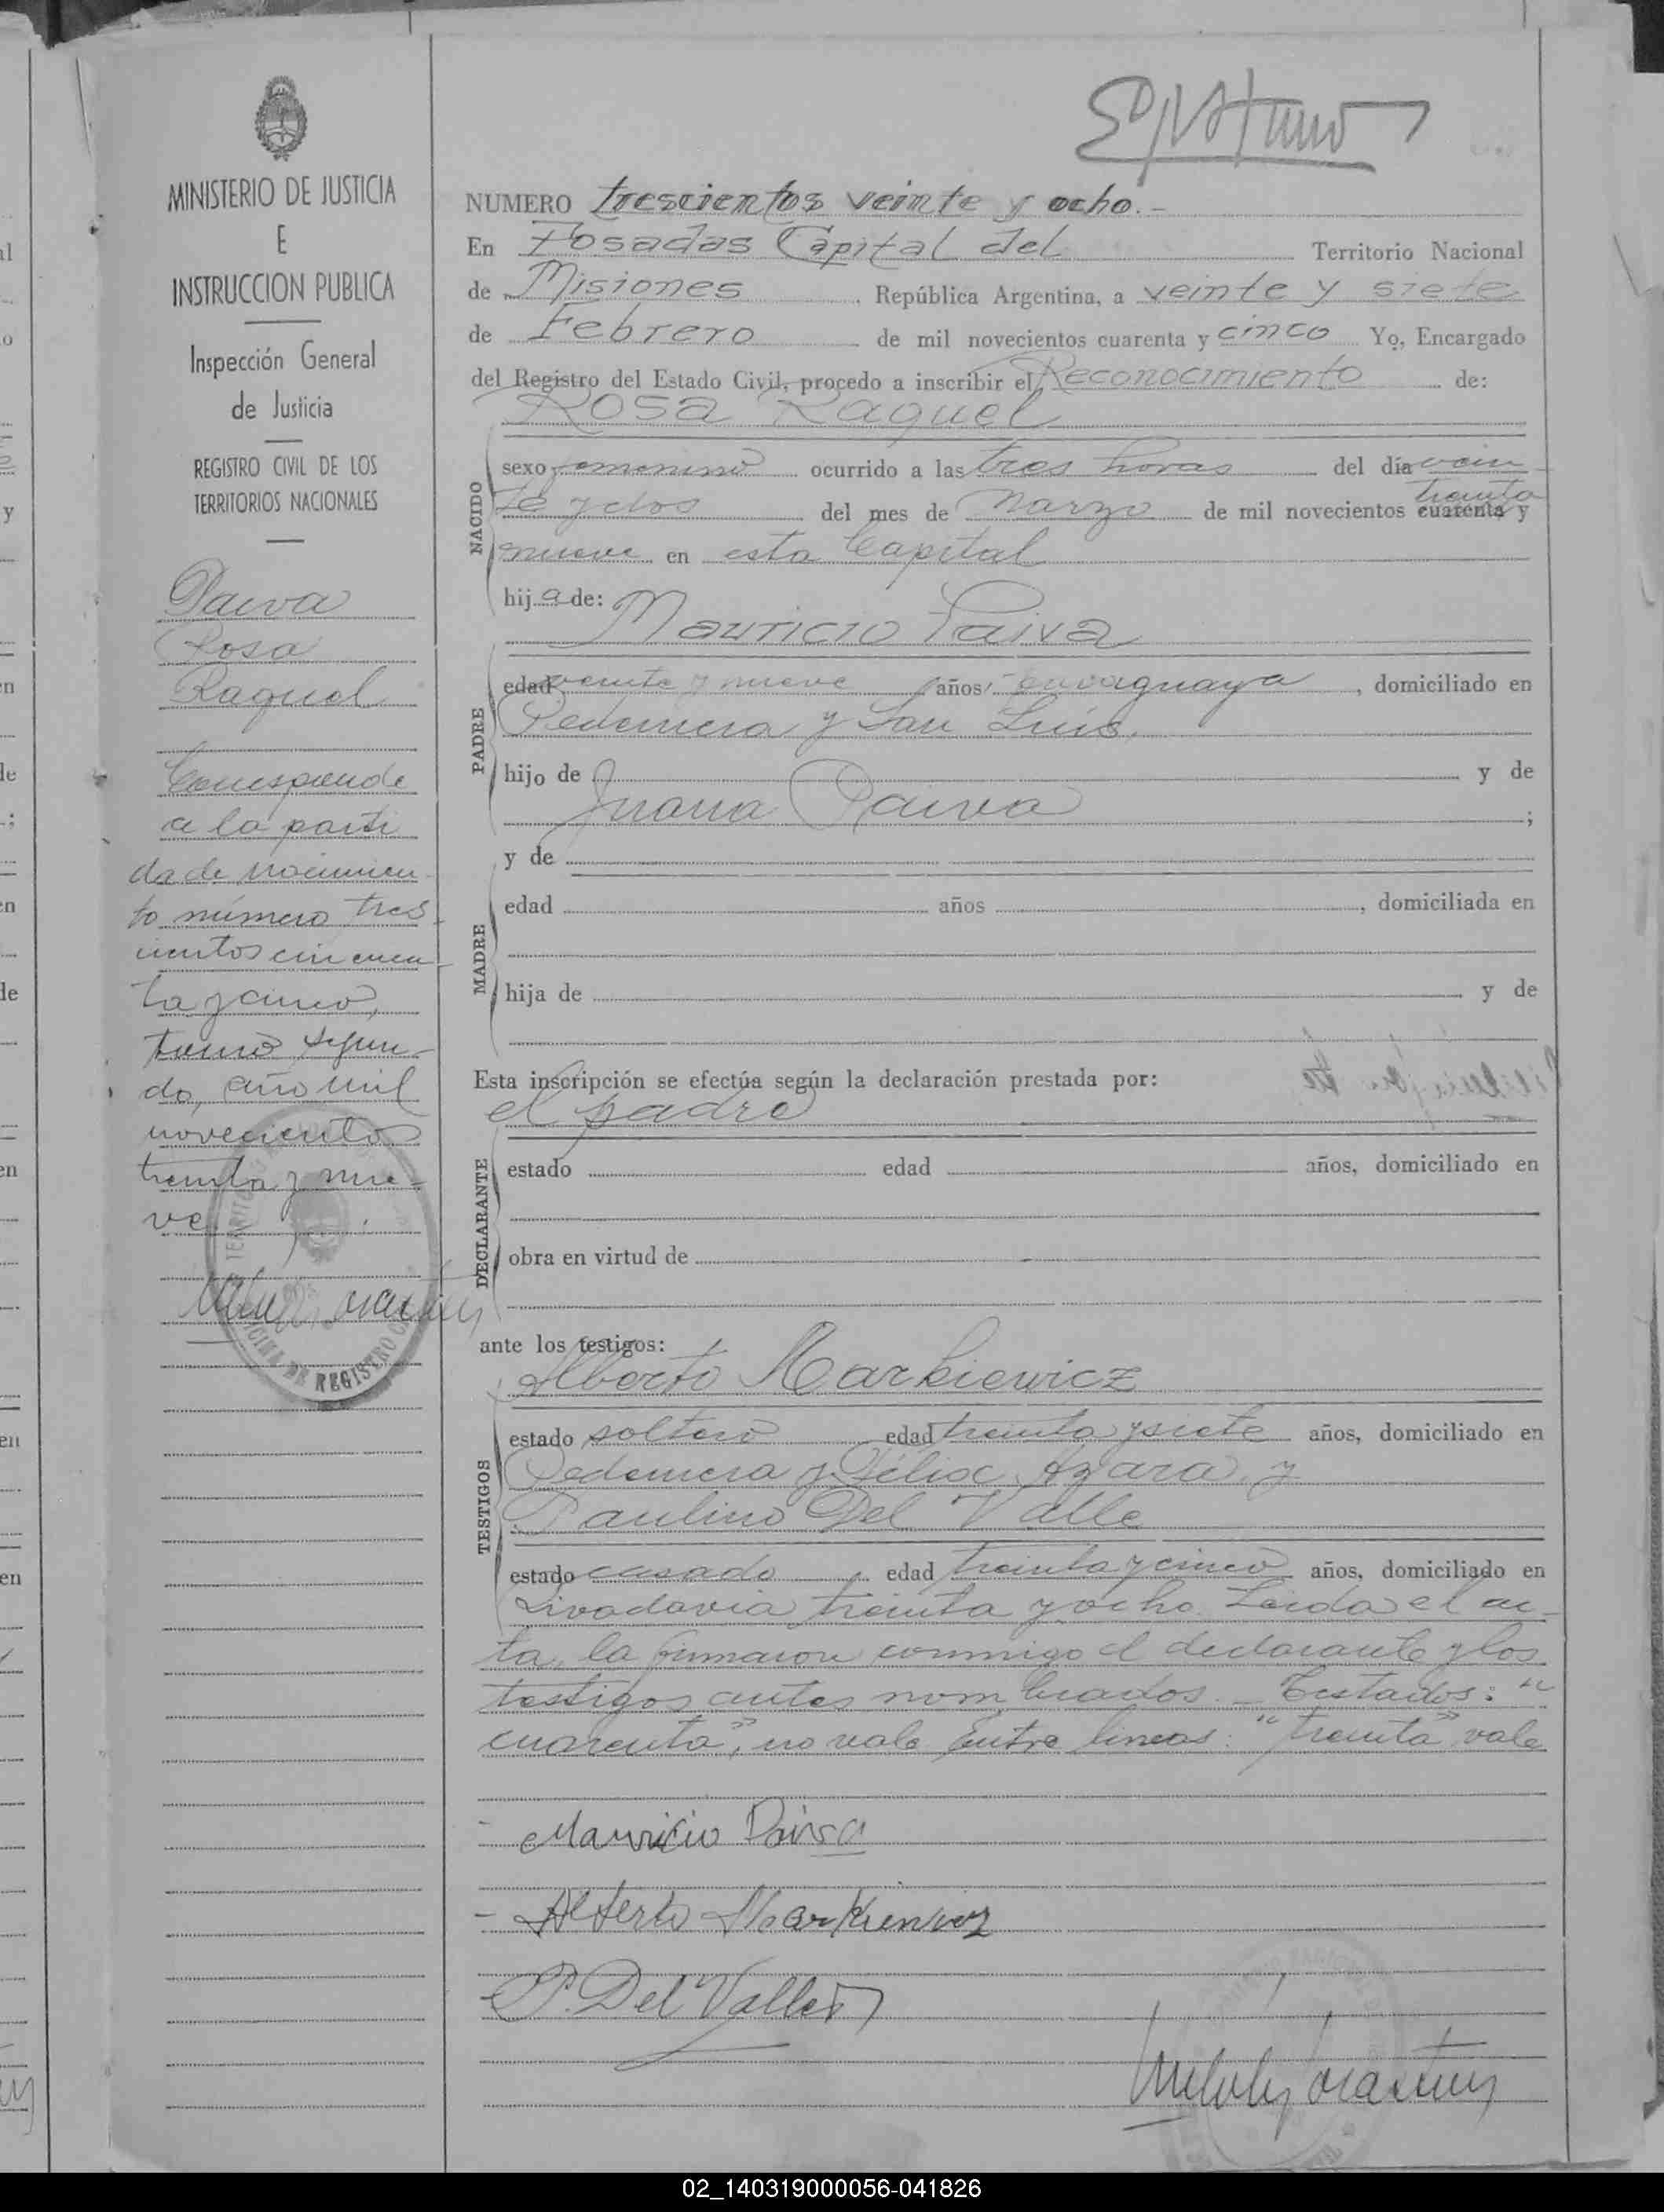 MINISTERIO DE JUSTICIA
E
INSTRUCCION PUBLICA
Inspección General
de Justicia
REGISTRO CIVIL DE LOS
TERRITORIOS NACIONALES
Paiva
Rosa
Raquel
Corresponde
a la parti
da de nacimien
to número tres
cientos cincuen
ta y cinco,
tomo segun-
do, año mil
novecientos
treinta y nue-
ve.
REGISTRO
NUMERO trescientos veinte y ocho.-
En Posadas Capital del Territorio Nacional
de Misiones, República Argentina, a veinte y siete
de Febrero de mil novecientos cuarenta y cinco Yo, Encargado
del Registro del Estado Civil, procedo a inscribir el Reconocimiento de:
Rosa Raquel
NACIDO
sexo femenino ocurrido a las tres horas del día vein
treinta
te y dos del mes de Marzo de mil novecientos cuarenta y
nueve en esta Capital
hija de:
Mauricio Paiva
PADRE
edad veinte y nueve años, paraguaya, domiciliado en
Pedernera y San Luis,
hijo de y de
Juana Paiva ;
y de
MADRE
edad años , domiciliada en
hija de y de
Esta inscripción se efectúa según la declaración prestada por:
el padre
DECLARANTE
estado edad años, domiciliado en
obra en virtud de
ante los testigos:
Alberto Markiewicz
TESTIGOS
estado soltero edad treinta y siete años, domiciliado en
Pedernera y Félix Azara, y
Paulino Del Valle
estado casado edad treinta y cinco años, domiciliado en
Rivadavia treinta y ocho. Leida el ac-
ta, la firmaron conmigo el declarante y los
testigos antes nombrados.- Testados: "
cuarenta", no vale Entre lineas: "treinta" vale
- Mauricio Paiva
- Alberto Markiewicz
- P. Del Valle
02_140319000056-041826